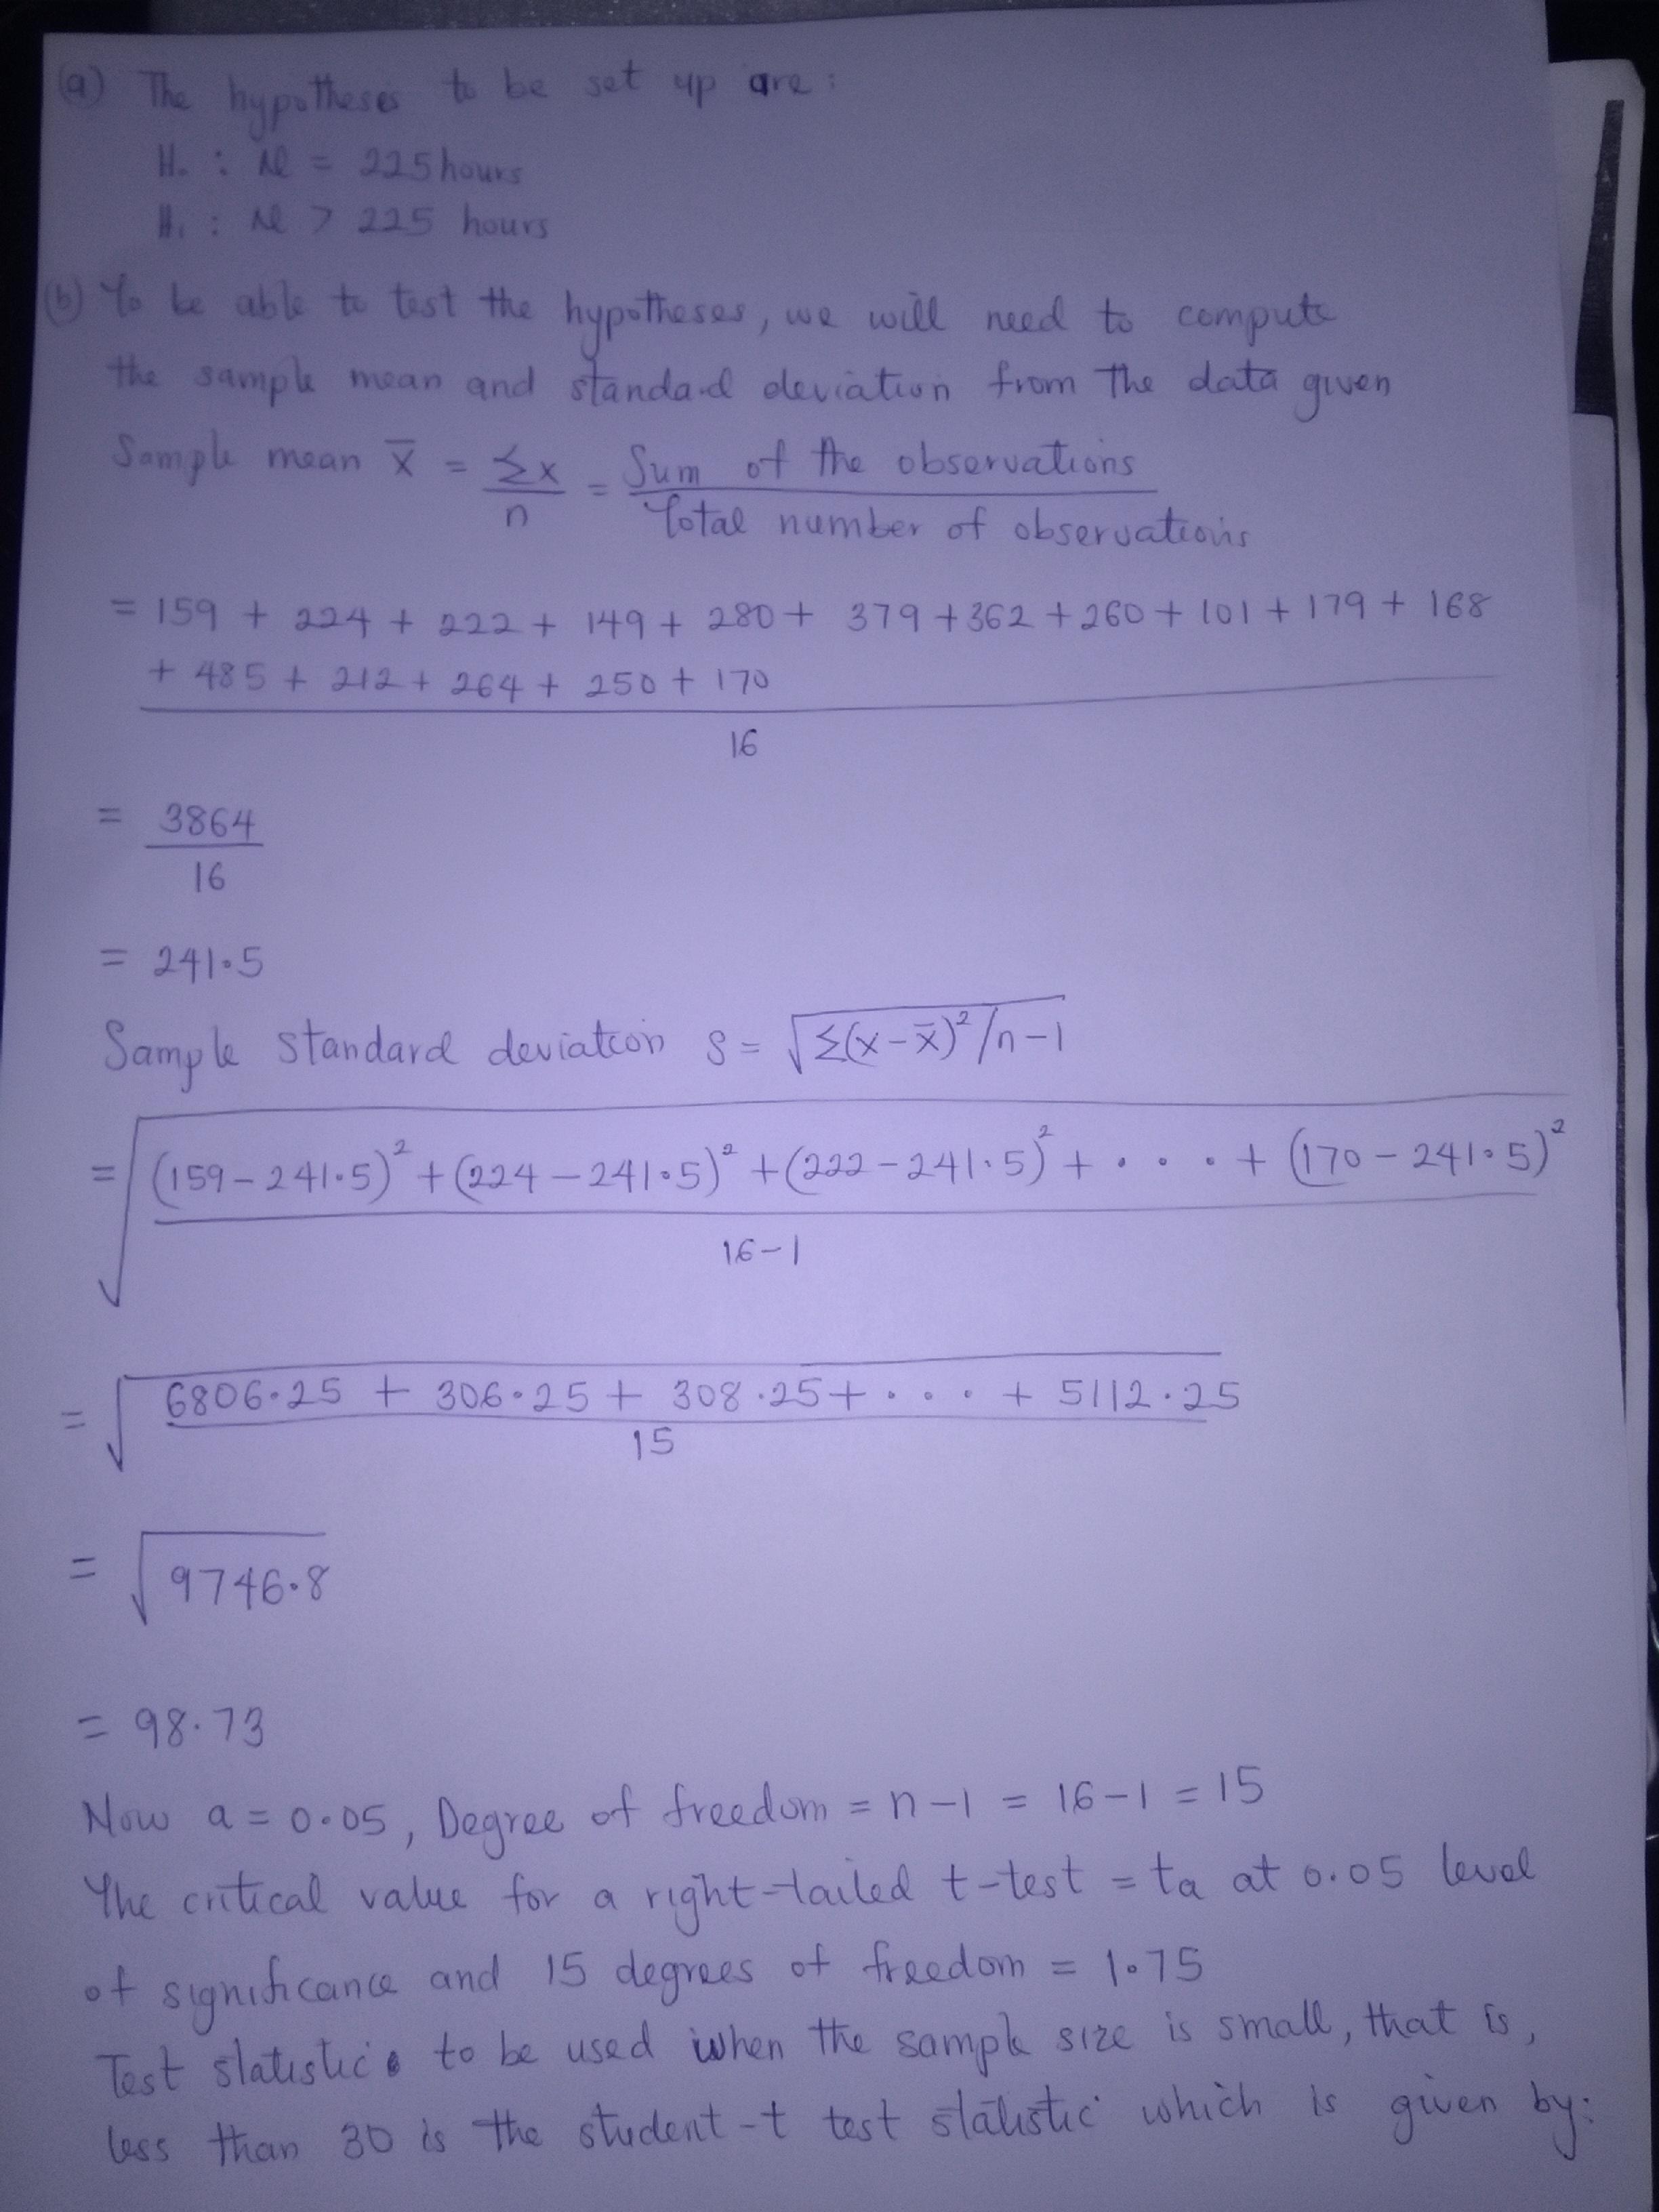 (a) The hypotheses to be set up are:
H₀ : μ = 225 hours
H₁ : μ > 225 hours
(b) To be able to test the hypotheses, we will need to compute
the sample mean and standard deviation from the data given
Sample mean x̄ = Σx/n = Sum of the observations / Total number of observations
= 159 + 224 + 222 + 149 + 280 + 379 + 362 + 260 + 101 + 179 + 168
+ 485 + 212 + 264 + 250 + 170
16
= 3864/16
= 241.5
Sample standard deviation s = √Σ(x-x̄)²/n-1
= √(159-241.5)² + (224-241.5)² + (222-241.5)² + . . . + (170-241.5)²
16-1
= √6806.25 + 306.25 + 308.25 + . . . + 5112.25
15
= √9746.8
= 98.73
Now a = 0.05, Degree of freedom = n-1 = 16-1 = 15
The critical value for a right-tailed t-test = ta at 0.05 level
of significance and 15 degrees of freedom = 1.75
Test statistic to be used when the sample size is small, that is,
less than 30 is the student-t test statistic which is given by: